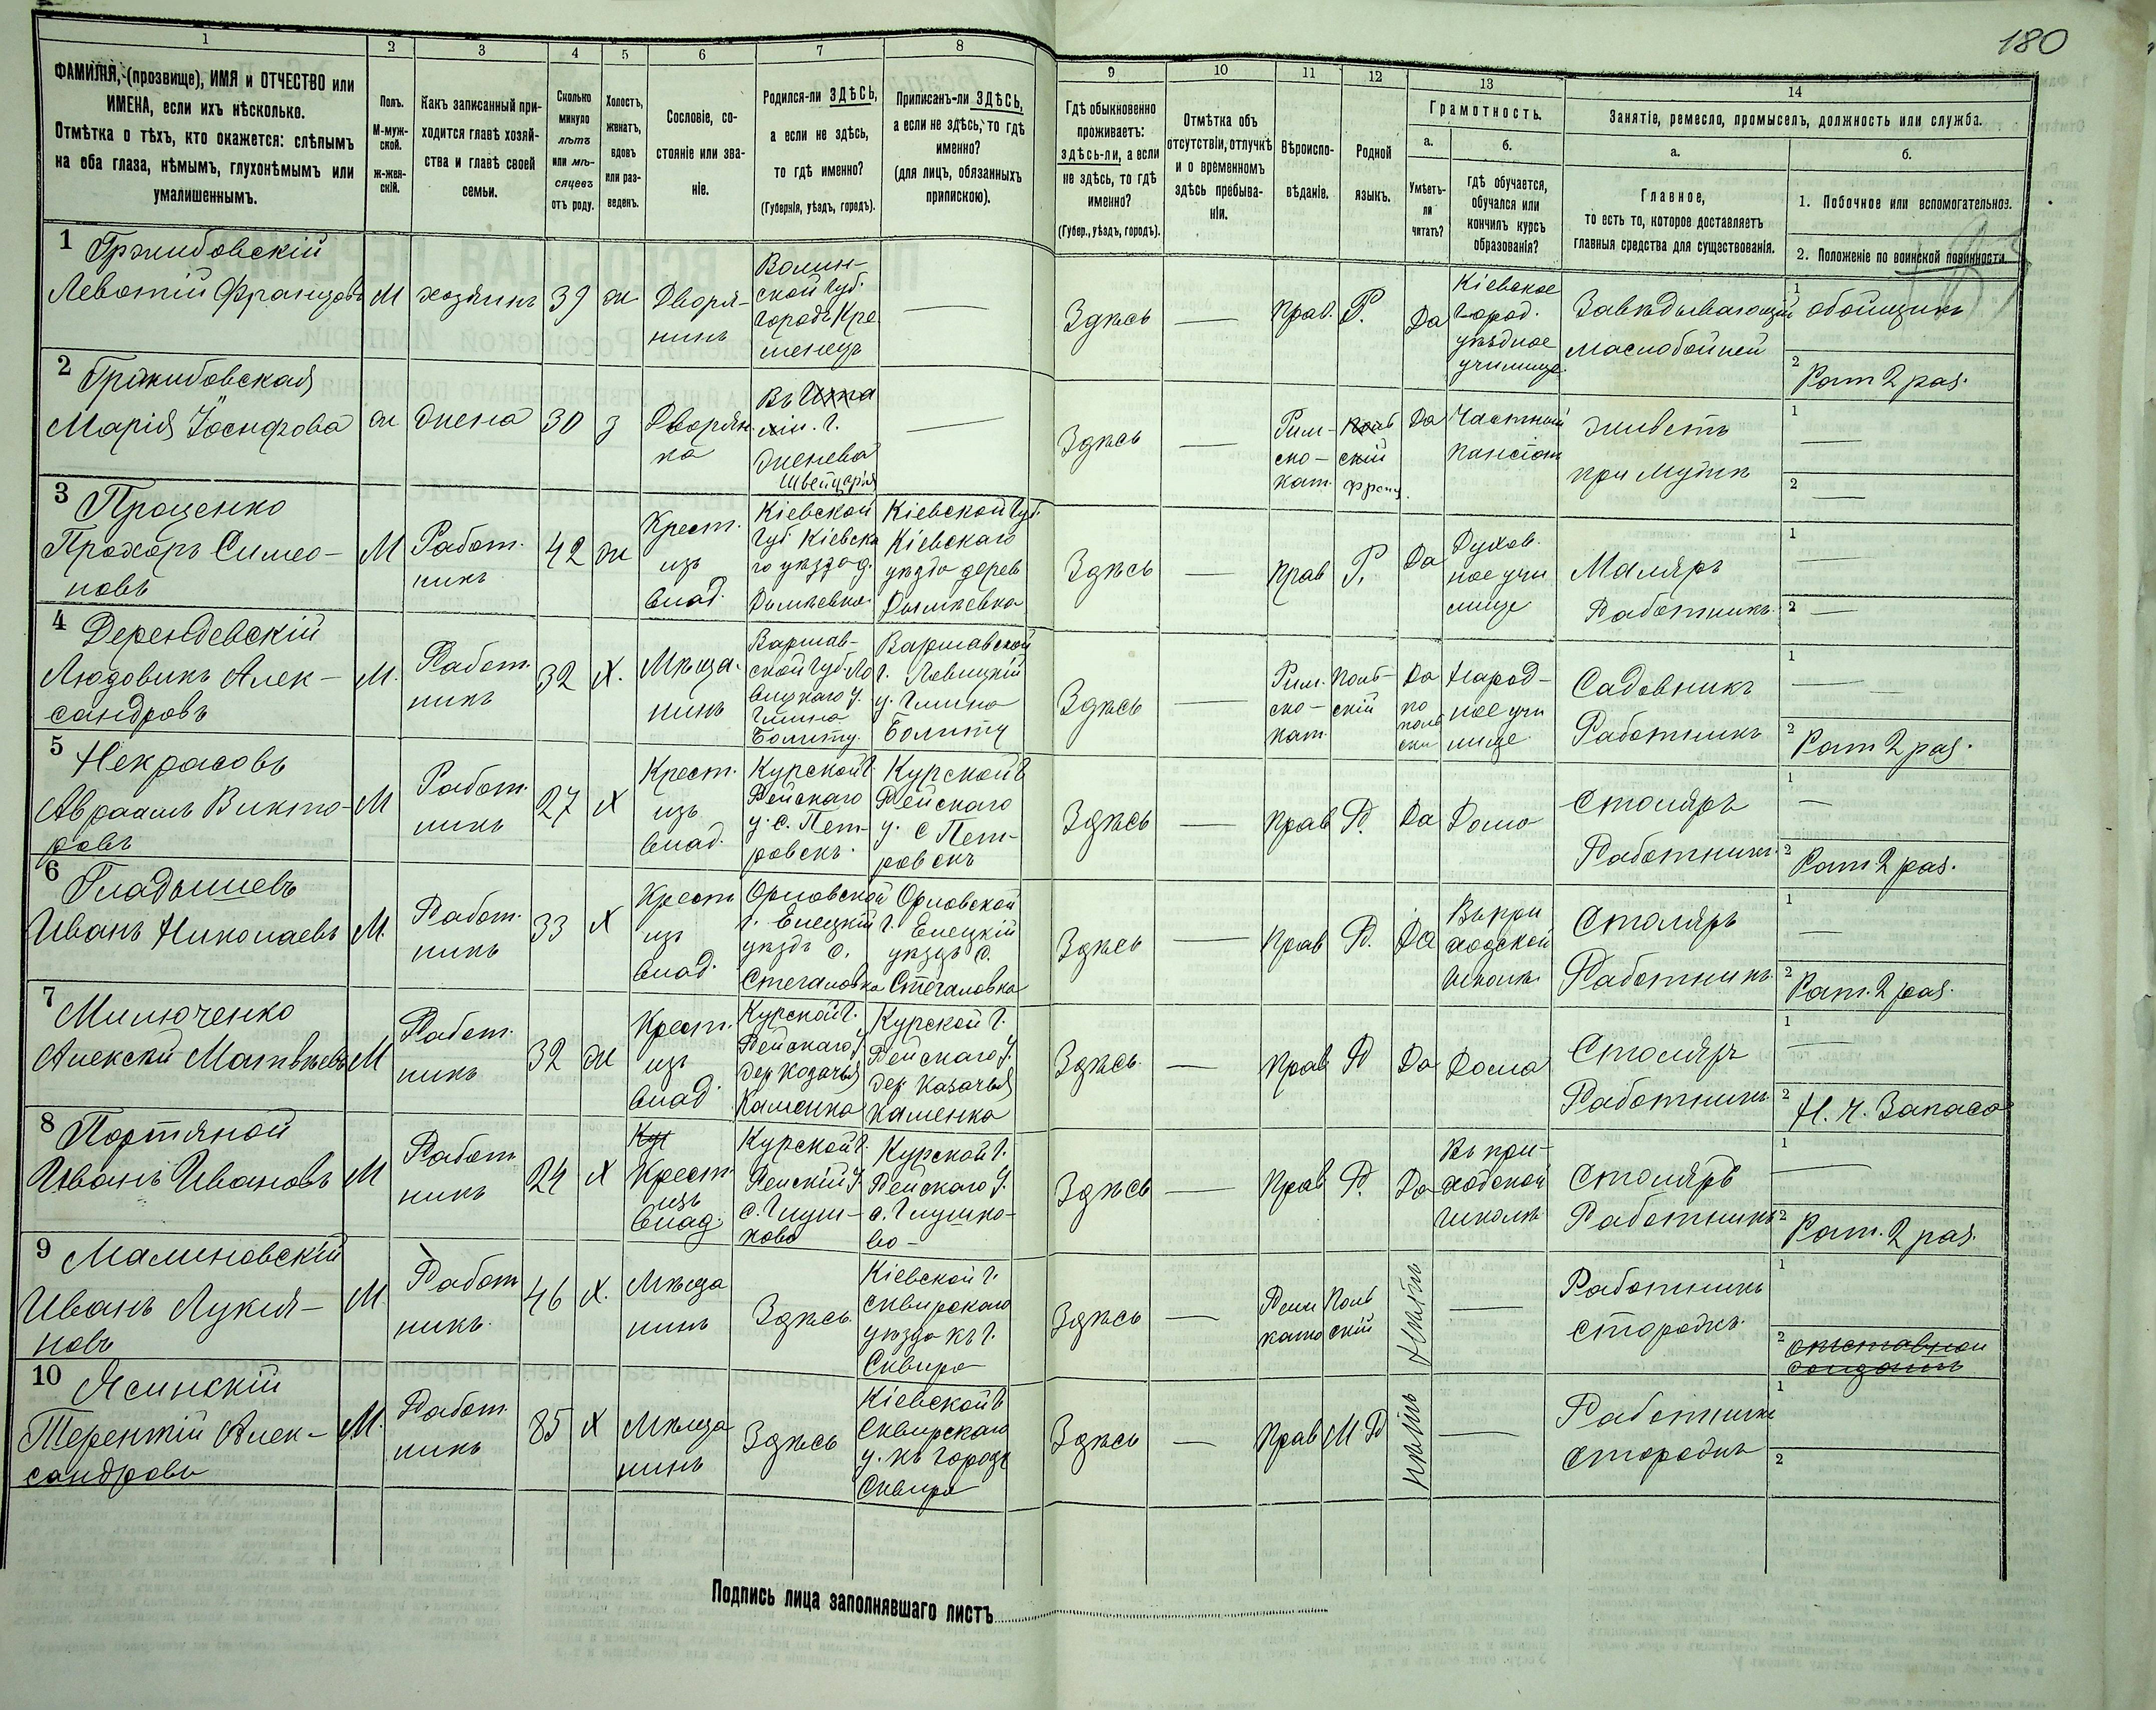 180
1 2 3 4 5 6 7 8 9 10 11 12 13 14
ФАМИЛІЯ, (прозвище), ИМЯ и ОТЧЕСТВО или
ИМЕНА, если ихъ нѣсколько.
Отмѣтка о тѣхъ, кто окажется: слѣпымъ
на оба глаза, нѣмымъ, глухонѣмымъ или
умалишеннымъ.
Полъ.
М-муж-
ской.
ж-жен-
скій.
Какъ записанный при-
ходится главѣ хозяй-
ства и главѣ своей
семьи.
Сколько
минуло
лѣтъ
или мѣ-
сяцевъ
отъ роду.
Холостъ,
женатъ,
вдовъ
или раз-
веденъ.
Сословіе, со-
стояніе или зва-
ніе.
Родился-ли ЗДѢСЬ,
а если не здѣсь,
то гдѣ именно?
(Губернія, уѣздъ, городъ).
Приписанъ-ли ЗДѢСЬ,
а если не здѣсь, то гдѣ
именно?
(для лицъ, обязанныхъ
припискою).
Гдѣ обыкновенно
проживаетъ:
здѣсь-ли, а если
не здѣсь, то гдѣ
именно?
(Губер., уѣздъ, городъ).
Отмѣтка объ
отсутствіи, отлучкѣ
и о временномъ
здѣсь пребыва-
ніи.
Вѣроиспо-
вѣданіе.
Родной
языкъ.
Грамотность.
а.
Умѣетъ-
ли
читать?
б.
гдѣ обучается,
обучался или
кончилъ курсъ
образованія?
Занятіе, ремесло, промыселъ, должность или служба.
а.
Главное,
то есть то, которое доставляетъ
главныя средства для существованія.
б.
1. Побочное или вспомогательное.
2. Положеніе по воинской повинности.
1 Гржибовскій
Левонтій Францовъ
М
хозяинъ
39
ж
Дворя-
нинъ
Волын-
ской губ.
городъ Кре
менецъ
—
Здѣсь
—
Прав.
Р.
Да
Кіевское
город.
уѣздное
училище.
Завѣдывающій
маслобойней
1 обойщикъ
2 Рат 2 раз.
2 Гржибовская
Марія Іосифова
ж
жена
30
з
Дворян
ка
Женева
Швейцарія
—
Здѣсь
—
Рим-
ско-
кат.
франц.
Да
Частный
пансіонъ
живетъ
при мужѣ
1 —
2 —
3 Проценко
Прохоръ Симео-
новъ
М
Работ.
никъ
42
ж
Крест.
изъ
влад.
Кіевской
губ. Кіевска
го уѣзда д.
Дымѣевка
Кіевской губ.
Кіевскаго
уѣзда дерев
Дымѣевка
Здѣсь
—
Прав
Р.
Да
Духов.
ное учи
лище
Маляръ
Работникъ.
1 —
2 —
4 Дерендевскій
Людовикъ Алек-
сандровъ
М.
Работ.
никъ
32
Х.
Мѣща.
нинъ
Варшав-
ской губ. Ло
вицкаго у.
Гмина
Болиту.
Варшавской
г. Ловицкій
у. Гмина
Болиту
Здѣсь
—
Рим.
ско-
кат.
Поль-
скій
Да
по
поль
ски
Народ-
ное учи
лище
Садовникъ
Работникъ
1 —
2 Рат 2 раз.
5 Некрасовъ
Авраамъ Викто-
ровъ
М
Работ.
никъ
27
Х
Крест.
изъ
влад.
Курской г.
Рейскаго
у. с. Пет-
ровскъ.
Курской г
Рейскаго
у. с Пет-
ровскъ
Здѣсь
—
Прав
Р.
Да
Дома
Столяръ
Работникъ.
1 —
2 Рат 2 раз.
6 Гладышевъ
Иванъ Николаевъ
М.
Работ.
никъ
33
Х
Крест
изъ
влад.
Орловской
г. Елецкій
уѣздъ с.
Стегаловка
Орловской
г. Елецкій
уѣздъ с.
Стегаловка
Здѣсь
—
Прав
Р.
Да
Въ при
ходской
школѣ.
Столяръ
Работникъ.
1 —
2 Рат. 2 раз.
7 Милюченко
Алексѣй Матвѣевъ
М
Работ.
никъ
32
ж
Крест.
изъ
влад.
Курской г.
Рейскаго у
дер Козачья
Каменка
Курской г.
Рейскаго у.
дер Казачья
Каменка
Здѣсь
—
Прав
Р
Да
Дома
Столяръ
Работникъ.
1 —
2 Н. ч. Запаса
8 Портяной
Иванъ Ивановъ
М
Работ
никъ
24
Х
Кур
Крест
изъ
влад.
Курской г.
Рейскій у.
с. Глуш-
ково
Курской г.
Рейскаго у.
с. Глушко-
во-
Здѣсь
—
Прав
Р.
Да
Въ при-
ходской
школѣ
Столяръ
Работникъ
1 —
2 Рат. 2 раз.
9 Малиновскій
Иванъ Лукія-
новъ
М.
Работ
никъ.
46
Х.
Мѣща
нинъ
Здѣсь.
Кіевской г.
Сквирскаго
уѣзда къ г.
Сквира
Здѣсь
—
Рим
като
Поль
скій
Нѣтъ
—
Работникъ
сторожъ.
1
2 отставной
солдатъ
10 Ясинскій
Терентій Алек-
сандровъ
М.
Работ.
никъ
85
Х
Мѣща
нинъ
Здѣсь
Кіевской г
Сквирскаго
у. къ городу
Сквира
Здѣсь
—
Прав
М. Р
Нѣтъ
—
Работникъ
сторожъ
1
2
Подпись лица заполнявшаго листъ